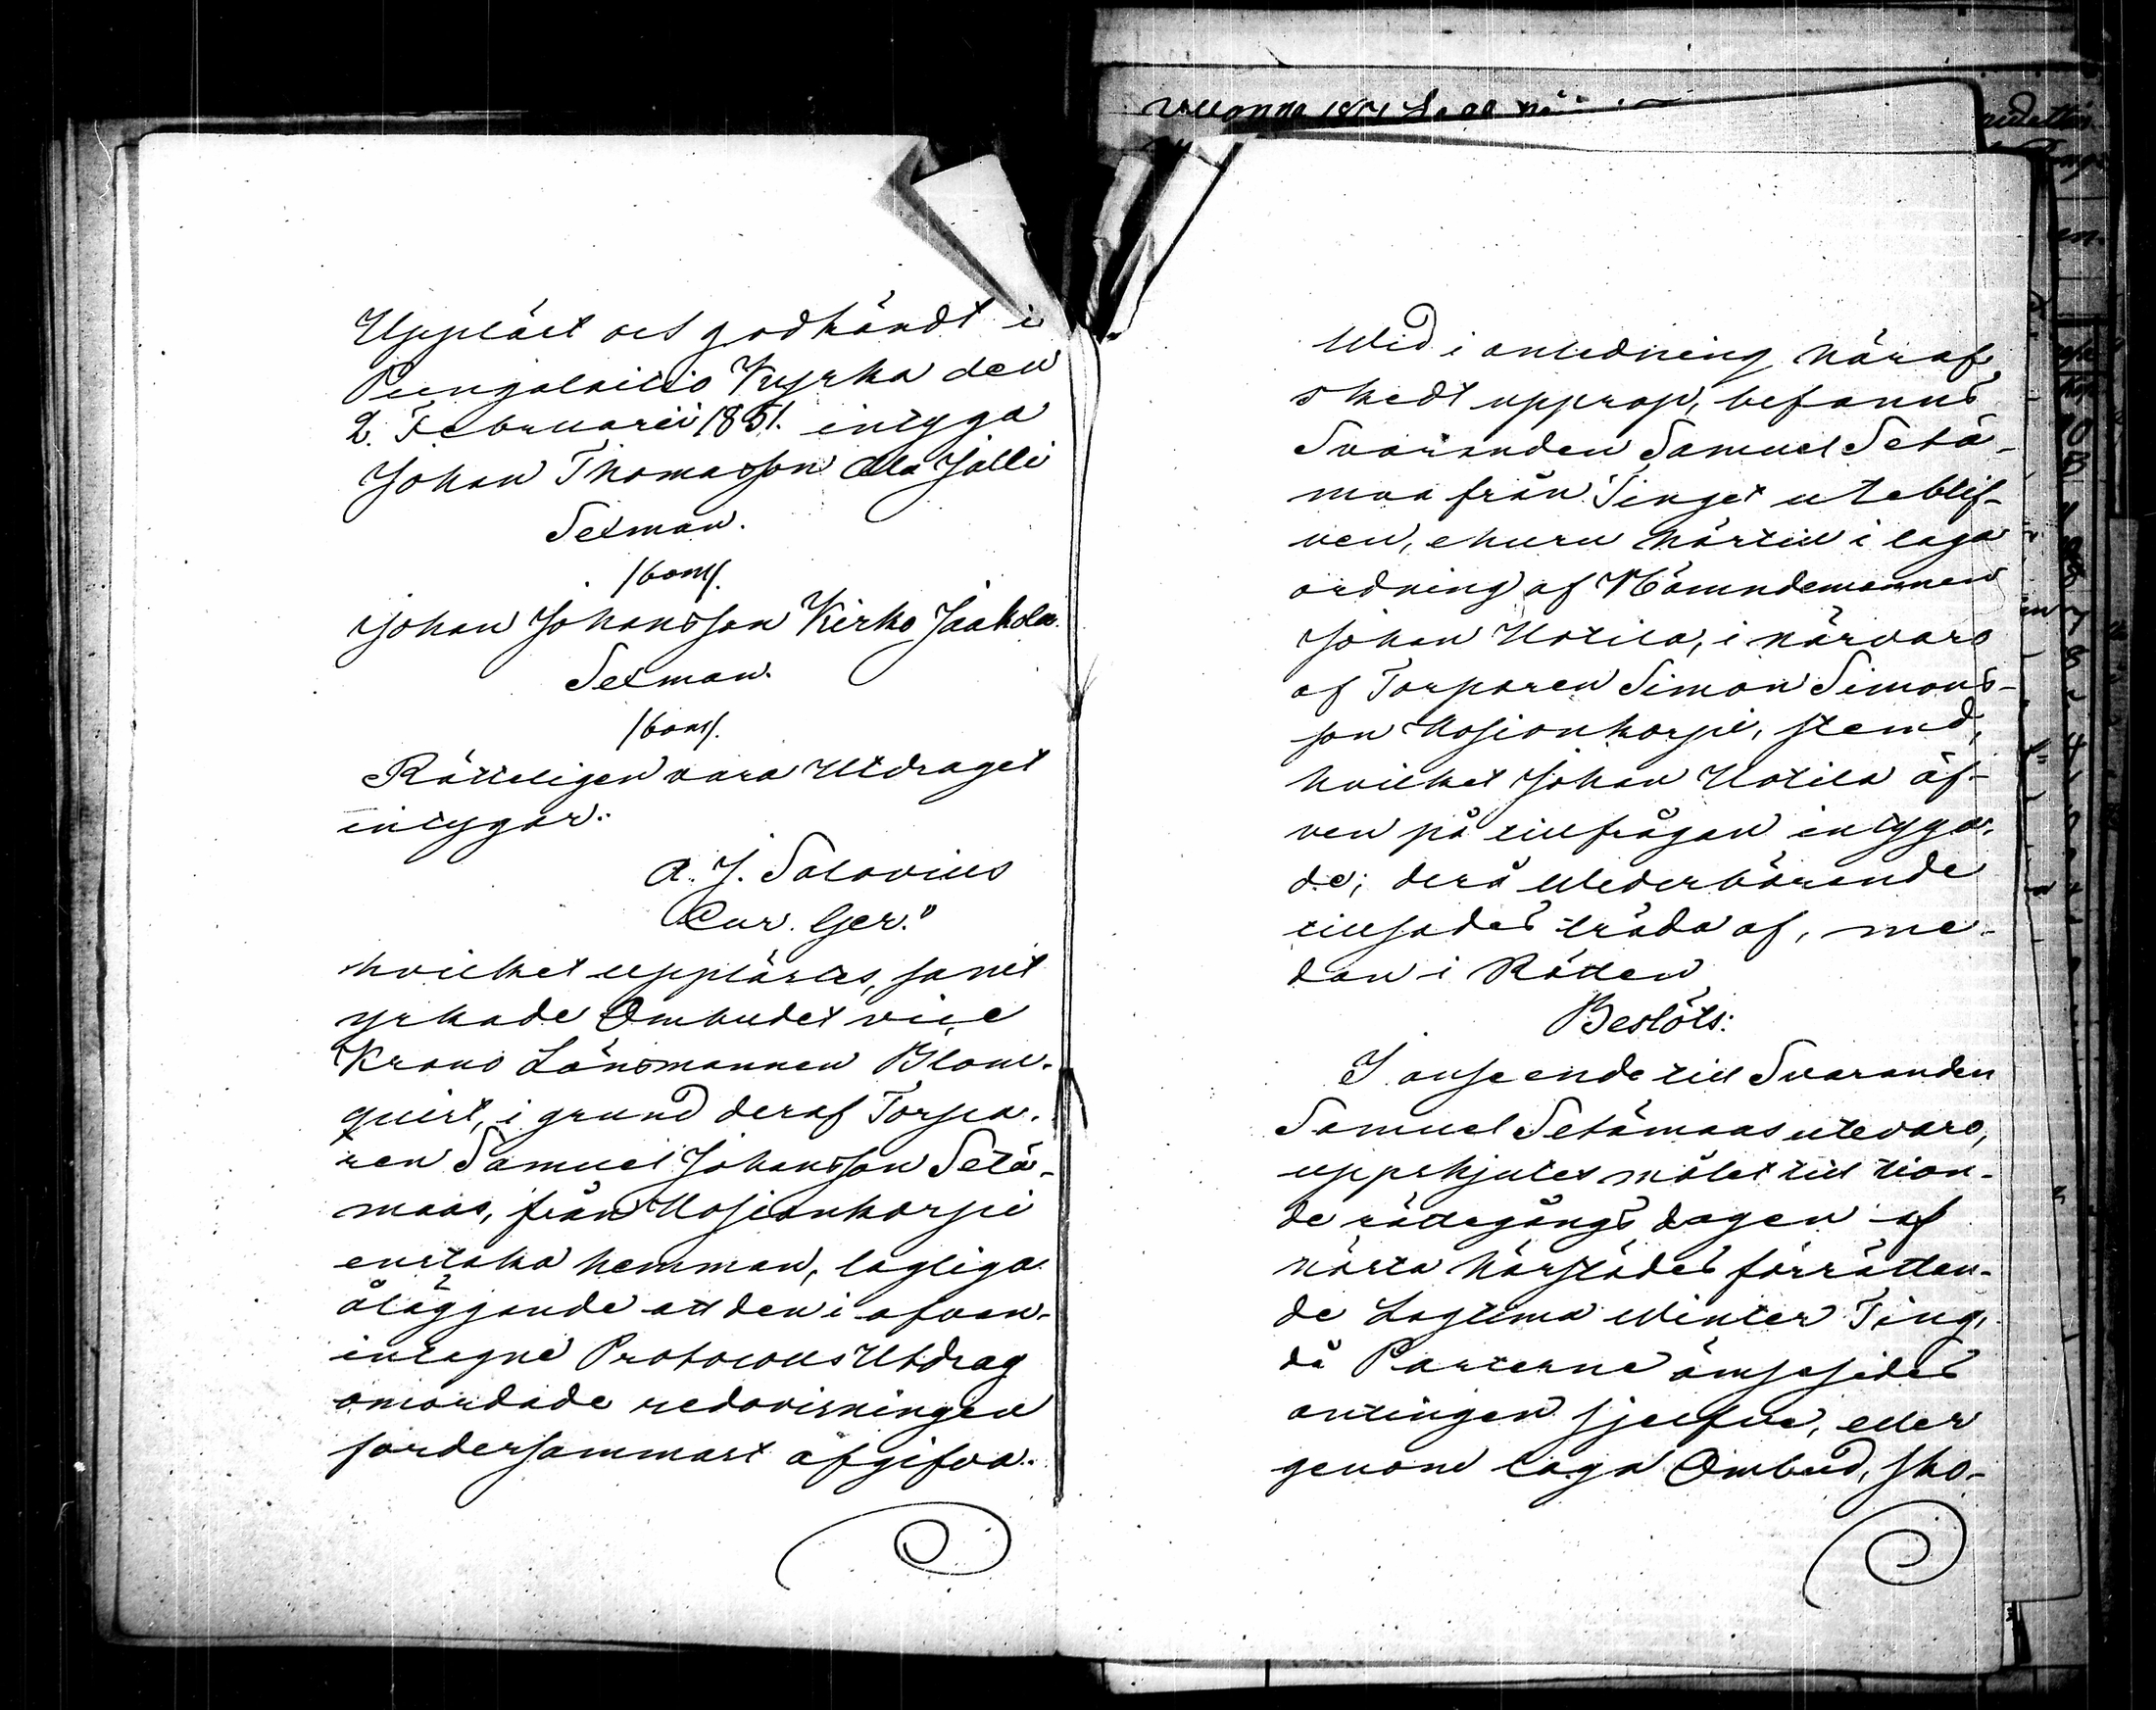 Uppläst och godkändt i
Pungalaitio Kyrka den
2. Februarii 1851. intyga
Johan Thomasson Ala Jälli
Sexman.
/bom/.
Johan Johansson Kirko Jaakola.
Sexman.
/bom/.
Rätteligen vara Utdraget
intygar.
A. J. Salovius
Cur. Ger."
hvilket upplästes, samt
yrkade Ombudet vice
Krono Länsmannen Blom-
quist, i grund deraf Torpa-
ren Samuel Johansson Setä-
maas, från Uosionkorpi
enstaka hemman, lagliga
åläggande att den i ofvan-
intagne Protocolls Utdrag
omordade redovisningen
fordersammast afgifva.
Wid i anledning häraf
skedt upprop, befanns
Svaranden Samuel Setä-
maa från Tinget uteblif-
ven, ehuru härtill i laga
ordning af Nämndemannen
Johan Uotila, i närvaro
af Torparen Simon Simons-
son Uosionkorpi, stemd,
hvilket Johan Uotila äf-
ven på tillfrågan intyga-
de; derå Wederbörande
tillsades träda af, me-
dan i Rätten
Beslöts:
I anseende till Svaranden
Samuel Setämaas utevaro,
uppskjutes målet till tion-
de rättegångs dagen af
nästa härstädes förrättan-
de Lagtima Winter Ting,
då Parterne ömsesides
antingen sjelfve, eller
genom laga Ombud, sko-